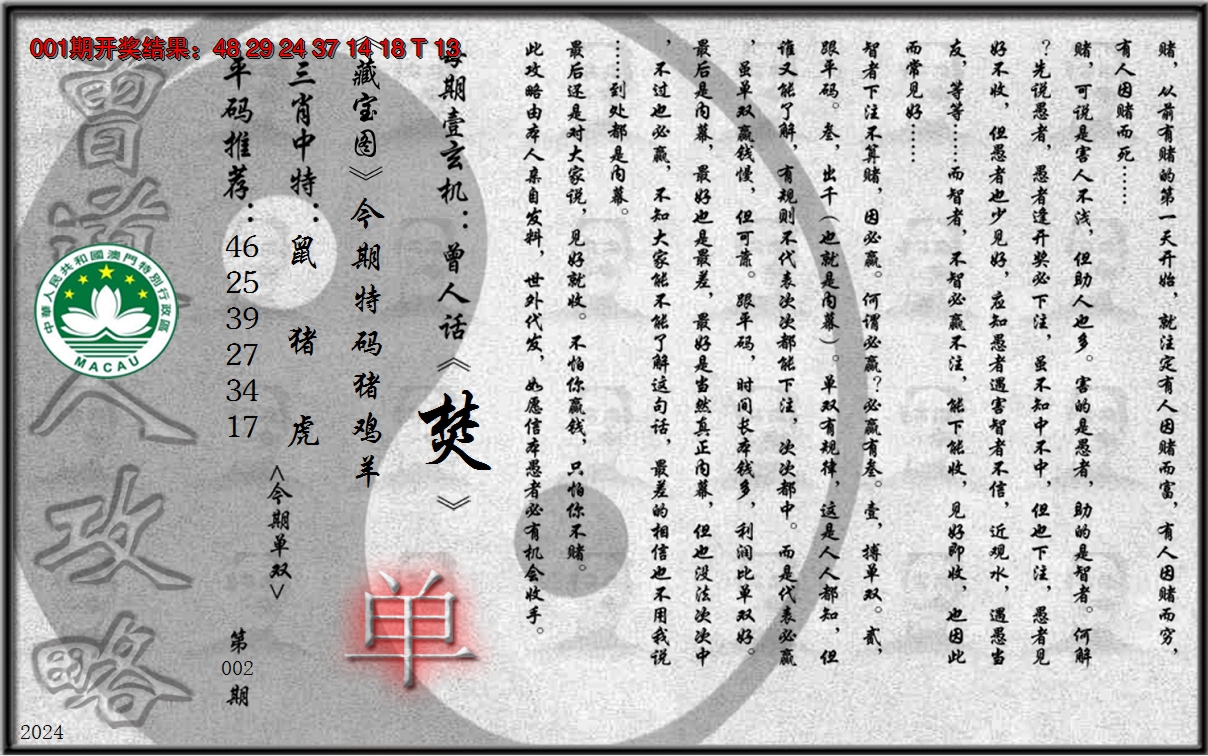 001期开奖结果：48 29 24 37 14 18 T 13
赌，从前有赌的第一天开始，就注定有人因赌而富，有人因赌而穷，
有人因赌而死……
赌，可说是害人不浅，但助人也多。害的是愚者，助的是智者。何解
？先说愚者，愚者逢开奖必下注，虽不知中不中，但也下注，愚者见
好不收，但愚者也少见好，应知愚者遇害智者不信，近观水，遇愚当
友，等等……而智者，不智必赢不注，能下能收，见好即收，也因此
而常见好……
智者下注不算赌，因必赢。何谓必赢？必赢有叁。壹，搏单双。贰，
跟平码。叁，出千（也就是内幕）。单双有规律，这是人人都知，但
谁又能了解，有规则不代表次次都能下注，次次都中。而是代表必赢
，虽单双赢钱慢，但可靠。跟平码，时间长本钱多，利润比单双好。
最后是内幕，最好也是最差，最好是当然真正内幕，但也没法次次中
，不过也必赢，不知大家能不能了解这句话，最差的相信也不用我说
……到处都是内幕。
最后还是对大家说，见好就收。不怕你赢钱，只怕你不赌。
此攻略由本人亲自发料，世外代发，如愿信本愚者必有机会收手。
每期壹玄机：曾人话《婪》
《藏宝图》今期特码猪鸡羊
单
三肖中特：鼠 猪 虎
<今期单双>
平码推荐：46 25 39 27 34 17
第002期
曾道人攻略
中華人民共和國澳門特別行政區
MACAU
2024